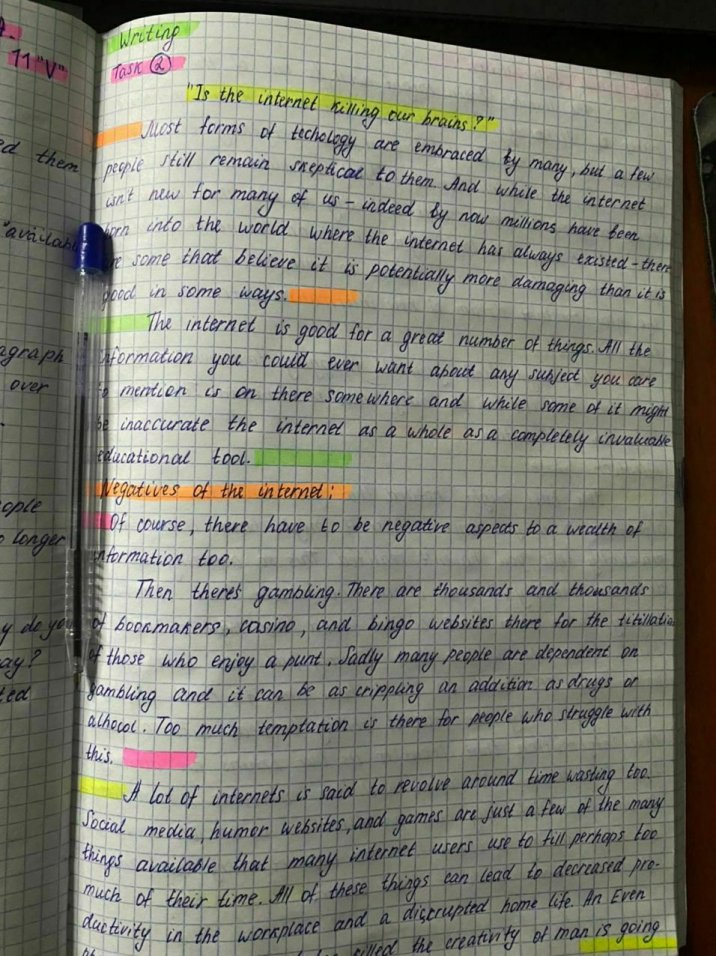 11 "V"
ed them
"availab
agraph
over
ople
longer
y do you
ay?
ted
Writing
Task 2
"Is the internet killing our brains?"
Most forms of techology are embraced by many, but a few
people still remain skeptical to them. And while the internet
isn't new for many of us – indeed by now millions have been
born into the world where the internet has always existed – there
are some that believe it is potentially more damaging than it is
good in some ways.
The internet is good for a great number of things. All the
information you could ever want about any subject you care
to mention is on there somewhere and while some of it might
be inaccurate the internet as a whole as a completely invaluable
educational tool.
Negatives of the internet:
Of course, there have to be negative aspects to a wealth of
information too.
Then there's gambling. There are thousands and thousands
of bookmakers, casino, and bingo websites there for the titillatio
of those who enjoy a punt. Sadly many people are dependent on
gambling and it can be as crippling an addition as drugs or
alhocol. Too much temptation is there for people who struggle with
this.
A lot of internets is said to revolve around time wasting too.
Social media, humor websites, and games are just a few of the many
things available that many internet users use to fill perhaps too
much of their time. All of these things can lead to decreased pro-
ductivity in the workplace and a discrupted home life. An Even
killed the creativity of man is going